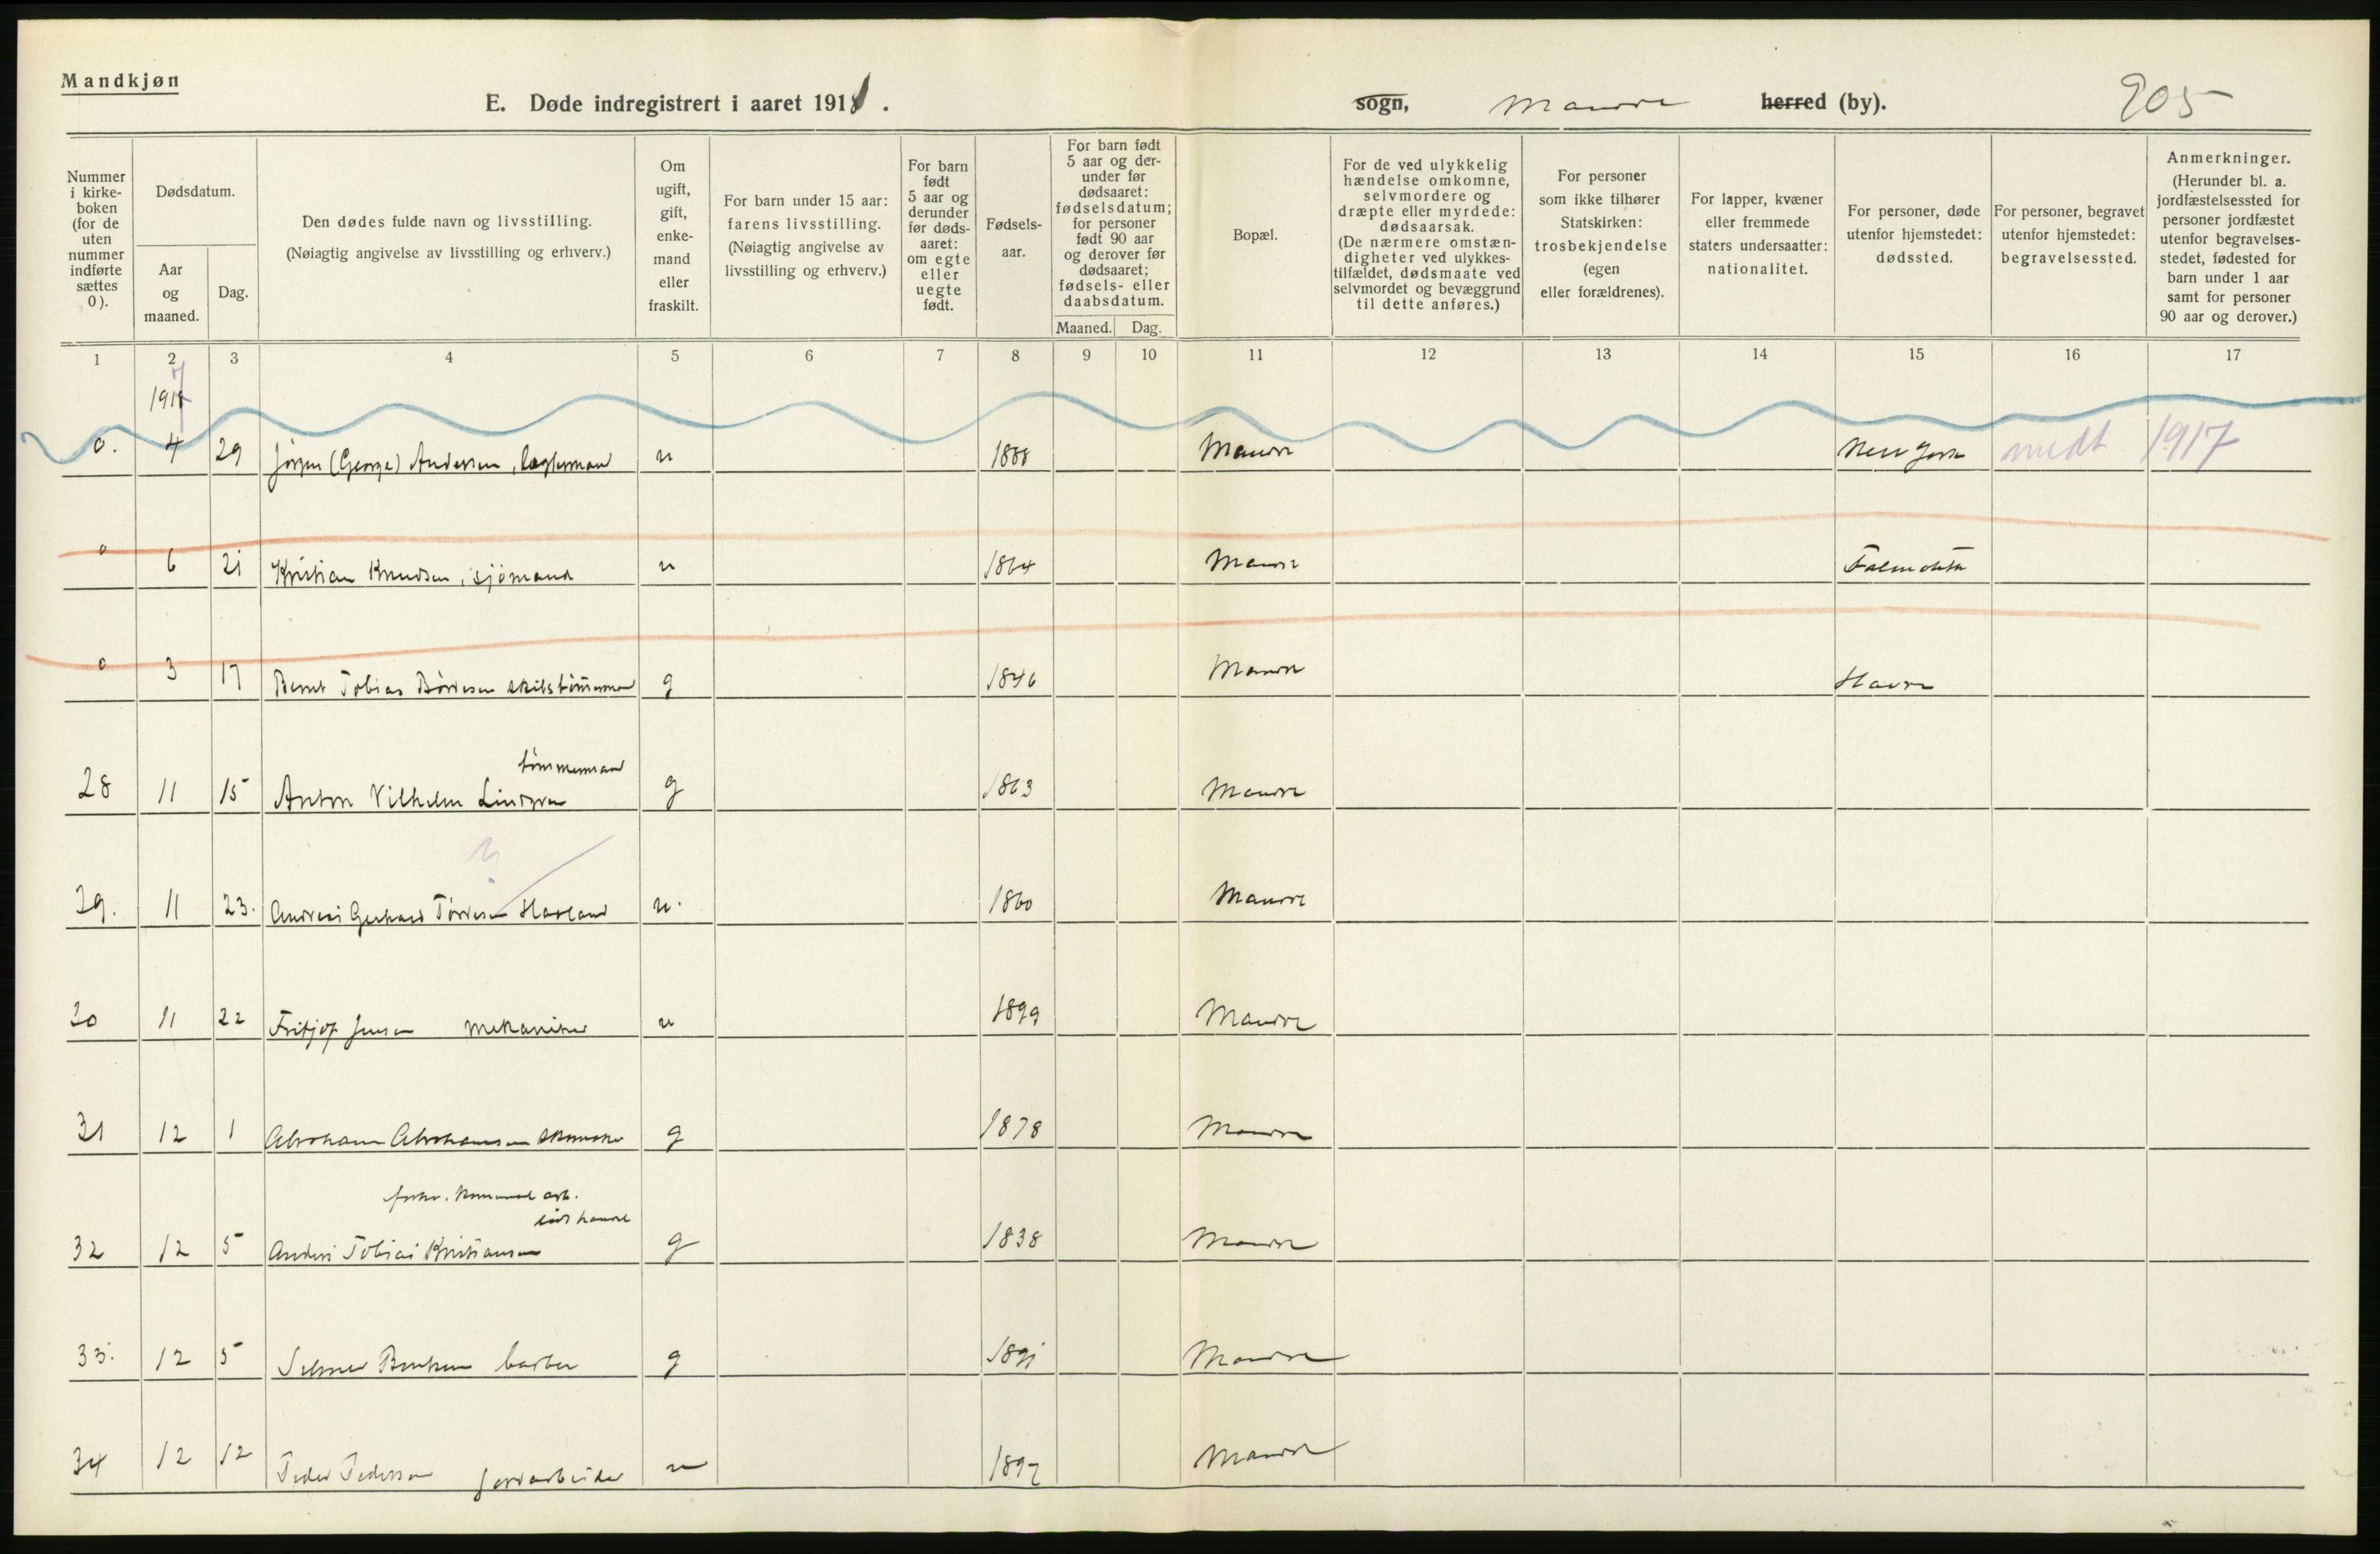 Mandkjøn
E. Døde indregistrert i aaret 1918.
sogn, Mandal herred (by). 205
Nummer i kirke- boken (for de uten nummer indførte sættes 0).
Dødsdatum.
Aar og maaned.
Dag.
Den dødes fulde navn og livsstilling.
(Nøiagtig angivelse av livsstilling og erhverv.)
Om ugift, gift, enke- mand eller fraskilt.
For barn under 15 aar: farens livsstilling. (Nøiagtig angivelse av livsstilling og erhverv.)
For barn født 5 aar og derunder før døds- aaret: om egte eller uegte født.
Fødsels- aar.
For barn født 5 aar og der- under før dødsaaret: fødselsdatum; for personer født 90 aar og derover før dødsaaret; fødsels- eller daabsdatum.
Maaned. Dag.
Bopæl.
For de ved ulykkelig hændelse omkomne, selvmordere og dræpte eller myrdede: dødsaarsak. (De nærmere omstæn- digheter ved ulykkes- tilfældet, dødsmaate ved selvmordet og bevæggrund til dette anføres.)
For personer som ikke tilhører Statskirken: trosbekjendelse (egen eller forældrenes).
For lapper, kvæner eller fremmede staters undersaatter: nationalitet.
For personer, døde utenfor hjemstedet: dødssted.
For personer, begravet utenfor hjemstedet: begravelsessted.
Anmerkninger. (Herunder bl. a. jordfæstelsessted for personer jordfæstet utenfor begravelses- stedet, fødested for barn under 1 aar samt for personer 90 aar og derover.)
1 2 3 4 5 6 7 8 9 10 11 12 13 14 15 16 17
7
1918
0. 4 29 Jørgen (George) Andersen, u 1888 New York medt 1917
0 6 21 Kristian Knudsen, sjømand u 1864 Falmouth
0 3 17 Bernt Tobias skibstømmermand g 1846 Havre
tømmermand
28 11 15 Anton Vilhelm g 1863
29. 11 23. Gerhard Haaland u. 1860
30 11 22 Fritjof Jensen mekaniker u 1899
31 12 1 Abraham Abrahamsen g 1878
32 12 5 Anders Tobias Kristiansen g 1838
33. 12 5 barber g 1891
34 12 12 Peder Pedersen jordarbeider u 1897